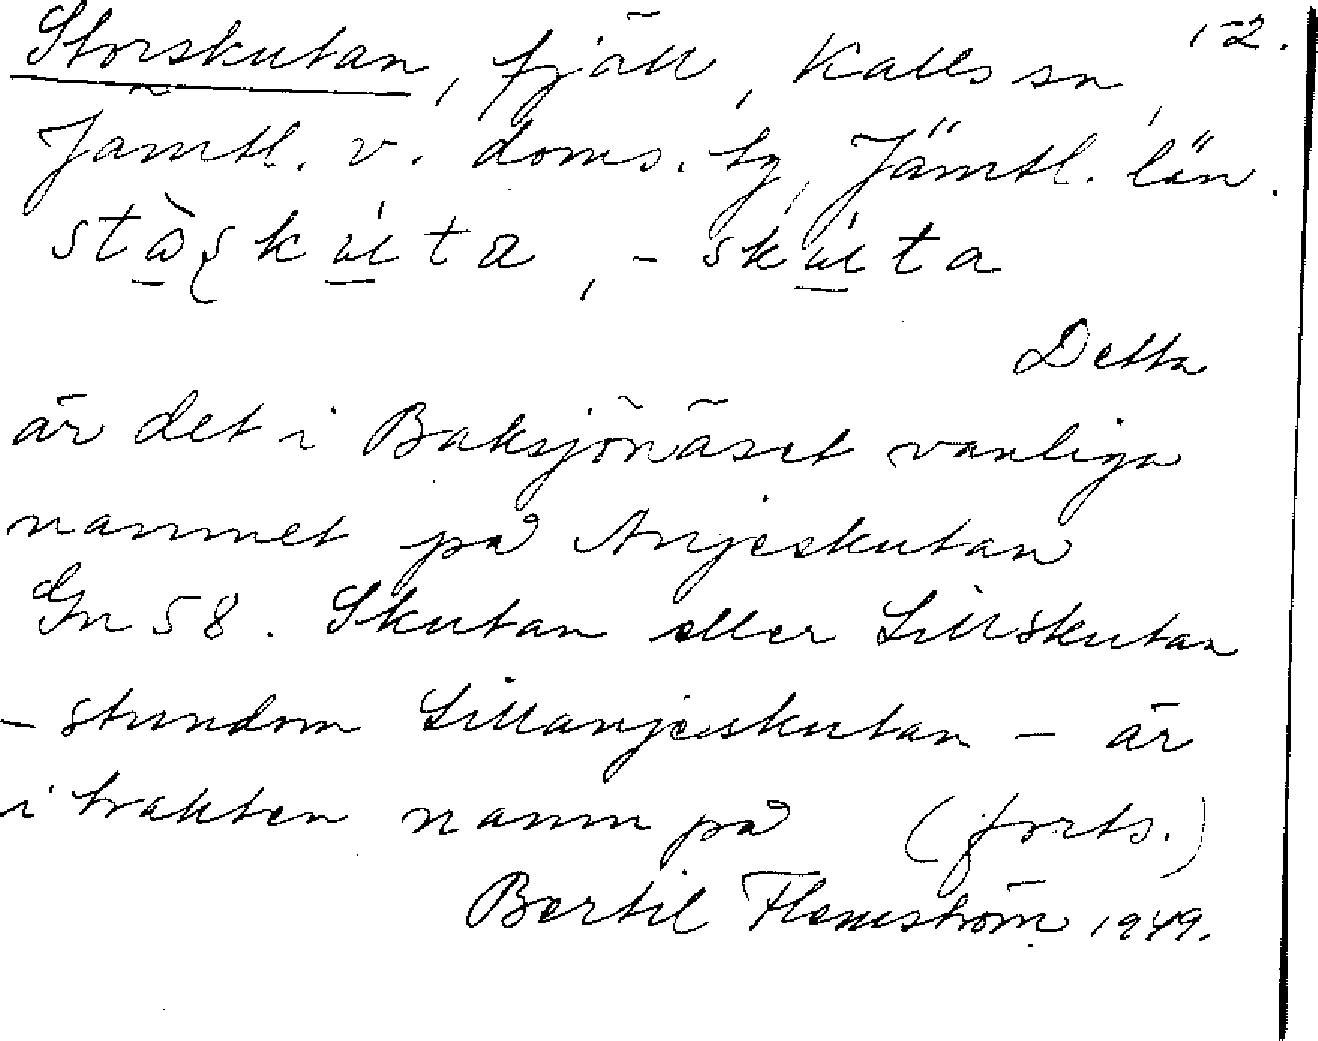 Storskutan, fjäll, Kalls sn, 1-2.
Jämtl. v. doms. tg, Jämtl. län.
stàʂkùta, -skùta
Detta
är det i Baksjönäset vanliga
namnet på Anjeskutan
Gn 58. Skutan eller Lillskutan
- stundom Lillanjeskutan - är
i trakten namn på (forts.)
Bertil Flemström 1949.